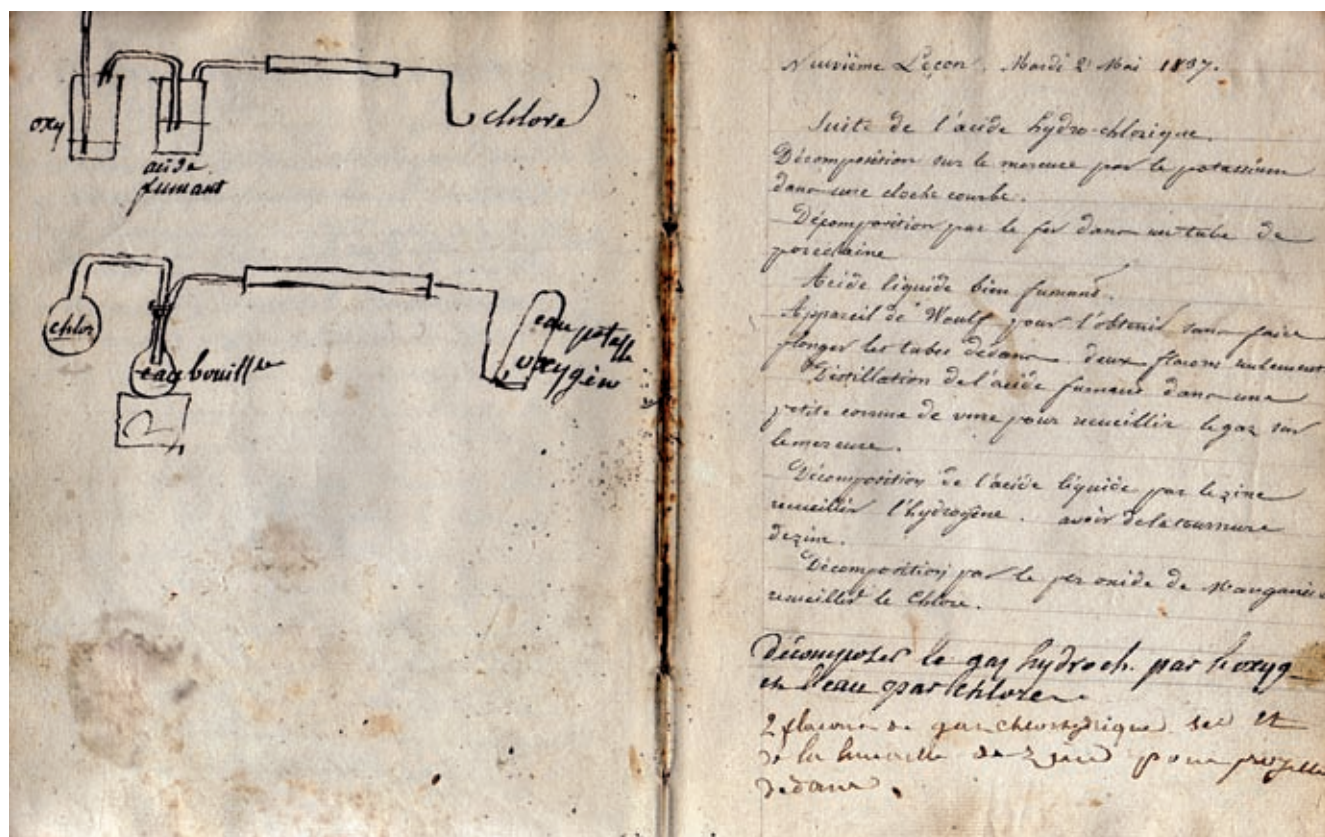 oxy
chlore
acide
fumant
chlor
eau bouille
eau potasse
oxygèn
Neuvième Leçon. Mardi 2 Mai 1837.
Suite de l'acide hydro-chlorique.
Décomposition sur le mercure par le potassium
dans une cloche courbe.
Décomposition par le fer dans un tube de
porcelaine
Acide liquide bien fumant.
Appareil de Woulf pour l'obtenir sans faire
plonger les tubes dedans. deux flacons seulement
Distillation de l'acide fumant dans une
petite cornue de verre pour recueillir le gaz sur
le mercure.
Décomposition de l'acide liquide par le zinc
recueillir l'hydrogène. avoir de la tournure
de zinc.
Décomposition par le per oxide de Manganèse
recueillir le Chlore.
Décomposer le gaz hydroch. par l'oxyg
et l'eau par chlore
2 flacons de gaz chlorhydrique sec et
de la limaille de zinc pour projeter
dedans.